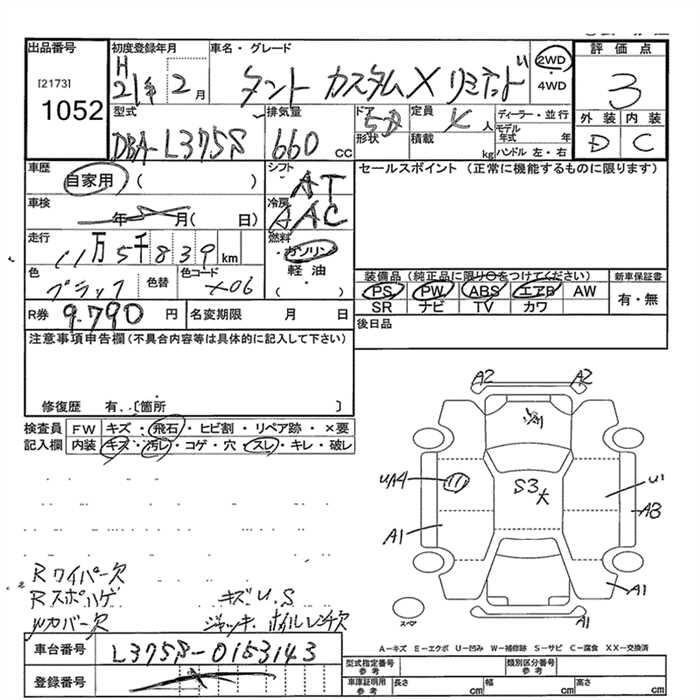 出品番号
[2173]
1052
初度登録年月
H
21年 2月
車名・グレード
タント カスタムX リミテッド
2WD
・
4WD
評価点
3
外装 内装
D C
型式
DBA-L375S
排気量
660 CC
ドア
5D
形状
定員
人
積載
kg
ディーラー・並行
モデル
年式 年
ハンドル 左・右
車歴
自家用 ( )
シフト
AT
セールスポイント (正常に機能するものに限ります)
車検
年 月( 日)
冷房
AAC
走行
11万5千839km
燃料
ガソリン
軽油
( )
色
ブラック
色替
色コード
X06
装備品 (純正品に限り○をつけてください)
新車保証書
PS PW ABS エアB AW
SR ナビ TV カワ
有・無
R券 9.790 円
名変期限 月 日
後日品
注意事項申告欄 (不具合内容等は具体的に記入して下さい)
修復歴 有.〔箇所 〕
検査員 FW キズ・飛石・ヒビ割・リペア跡・×要
記入欄 内装 キズ・汚レ・コゲ・穴・スレ・キレ・破レ
A2 A2
UA4
S3大
U1
A3
A1
A1
A1
スペア
Rワイパー欠
Rスポハゲ キズU.S
カバー欠 ジャッキ ホイルレンチ欠
A-キズ E-エクボ U-凹み W-補修跡 S-サビ C-腐食 XX-交換済
車台番号 L375S-0153143
登録番号
型式指定番号
参考
類別区分番号
参考
車庫証明用
参考
長さ cm
幅 cm
高さ cm